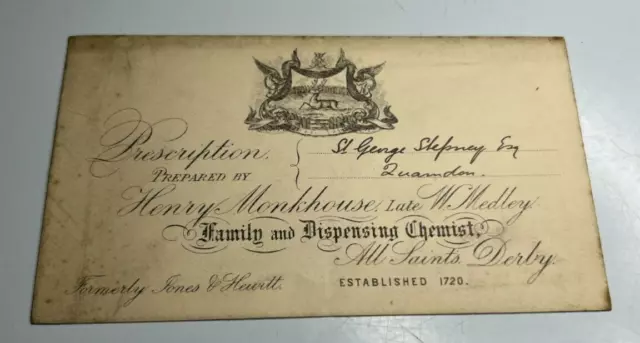 Prescription. { St. George Stepney Esq
PREPARED BY Quarndon.
Henry Monkhouse, Late W. Medley.
Family and Dispensing Chemist,
All Saints, Derby.
Formerly Jones & Hewitt. ESTABLISHED 1720.